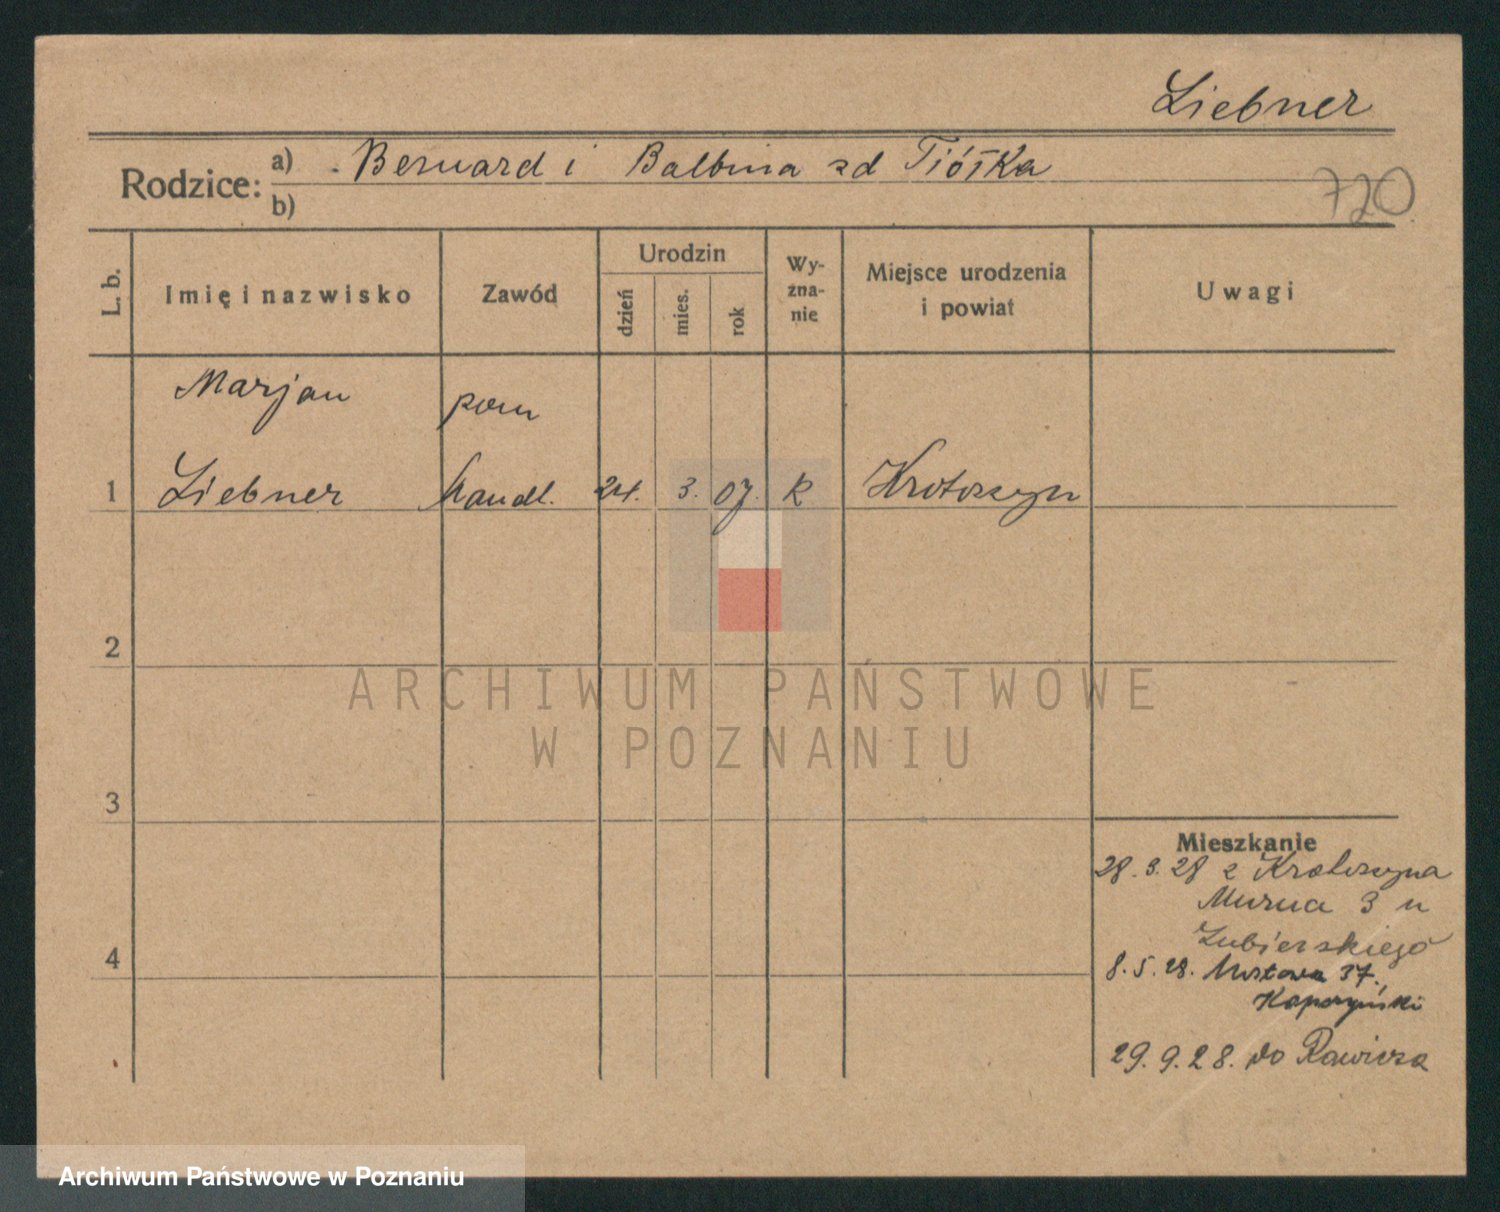 Liebner
Rodzice: a) Bernard i Balbina zd Fiółka
b)
720
L. b.
Imię i nazwisko
Zawód
Urodzin
dzień
mies.
rok
Wy-
zna-
nie
Miejsce urodzenia
i powiat
Uwagi
Marjan pom
1 Liebner handl. 24. 3. 07. k Krotoszyn
2
ARCHIWUM PAŃSTWOWE
W POZNANIU
3
4
Mieszkanie
28.3.28 z Krotoszyna
Murna 3 u
Zubierskiego
8.5.28. Mostowa 37.
Kapczyński
29.9.28. do Rawicza
Archiwum Państwowe w Poznaniu